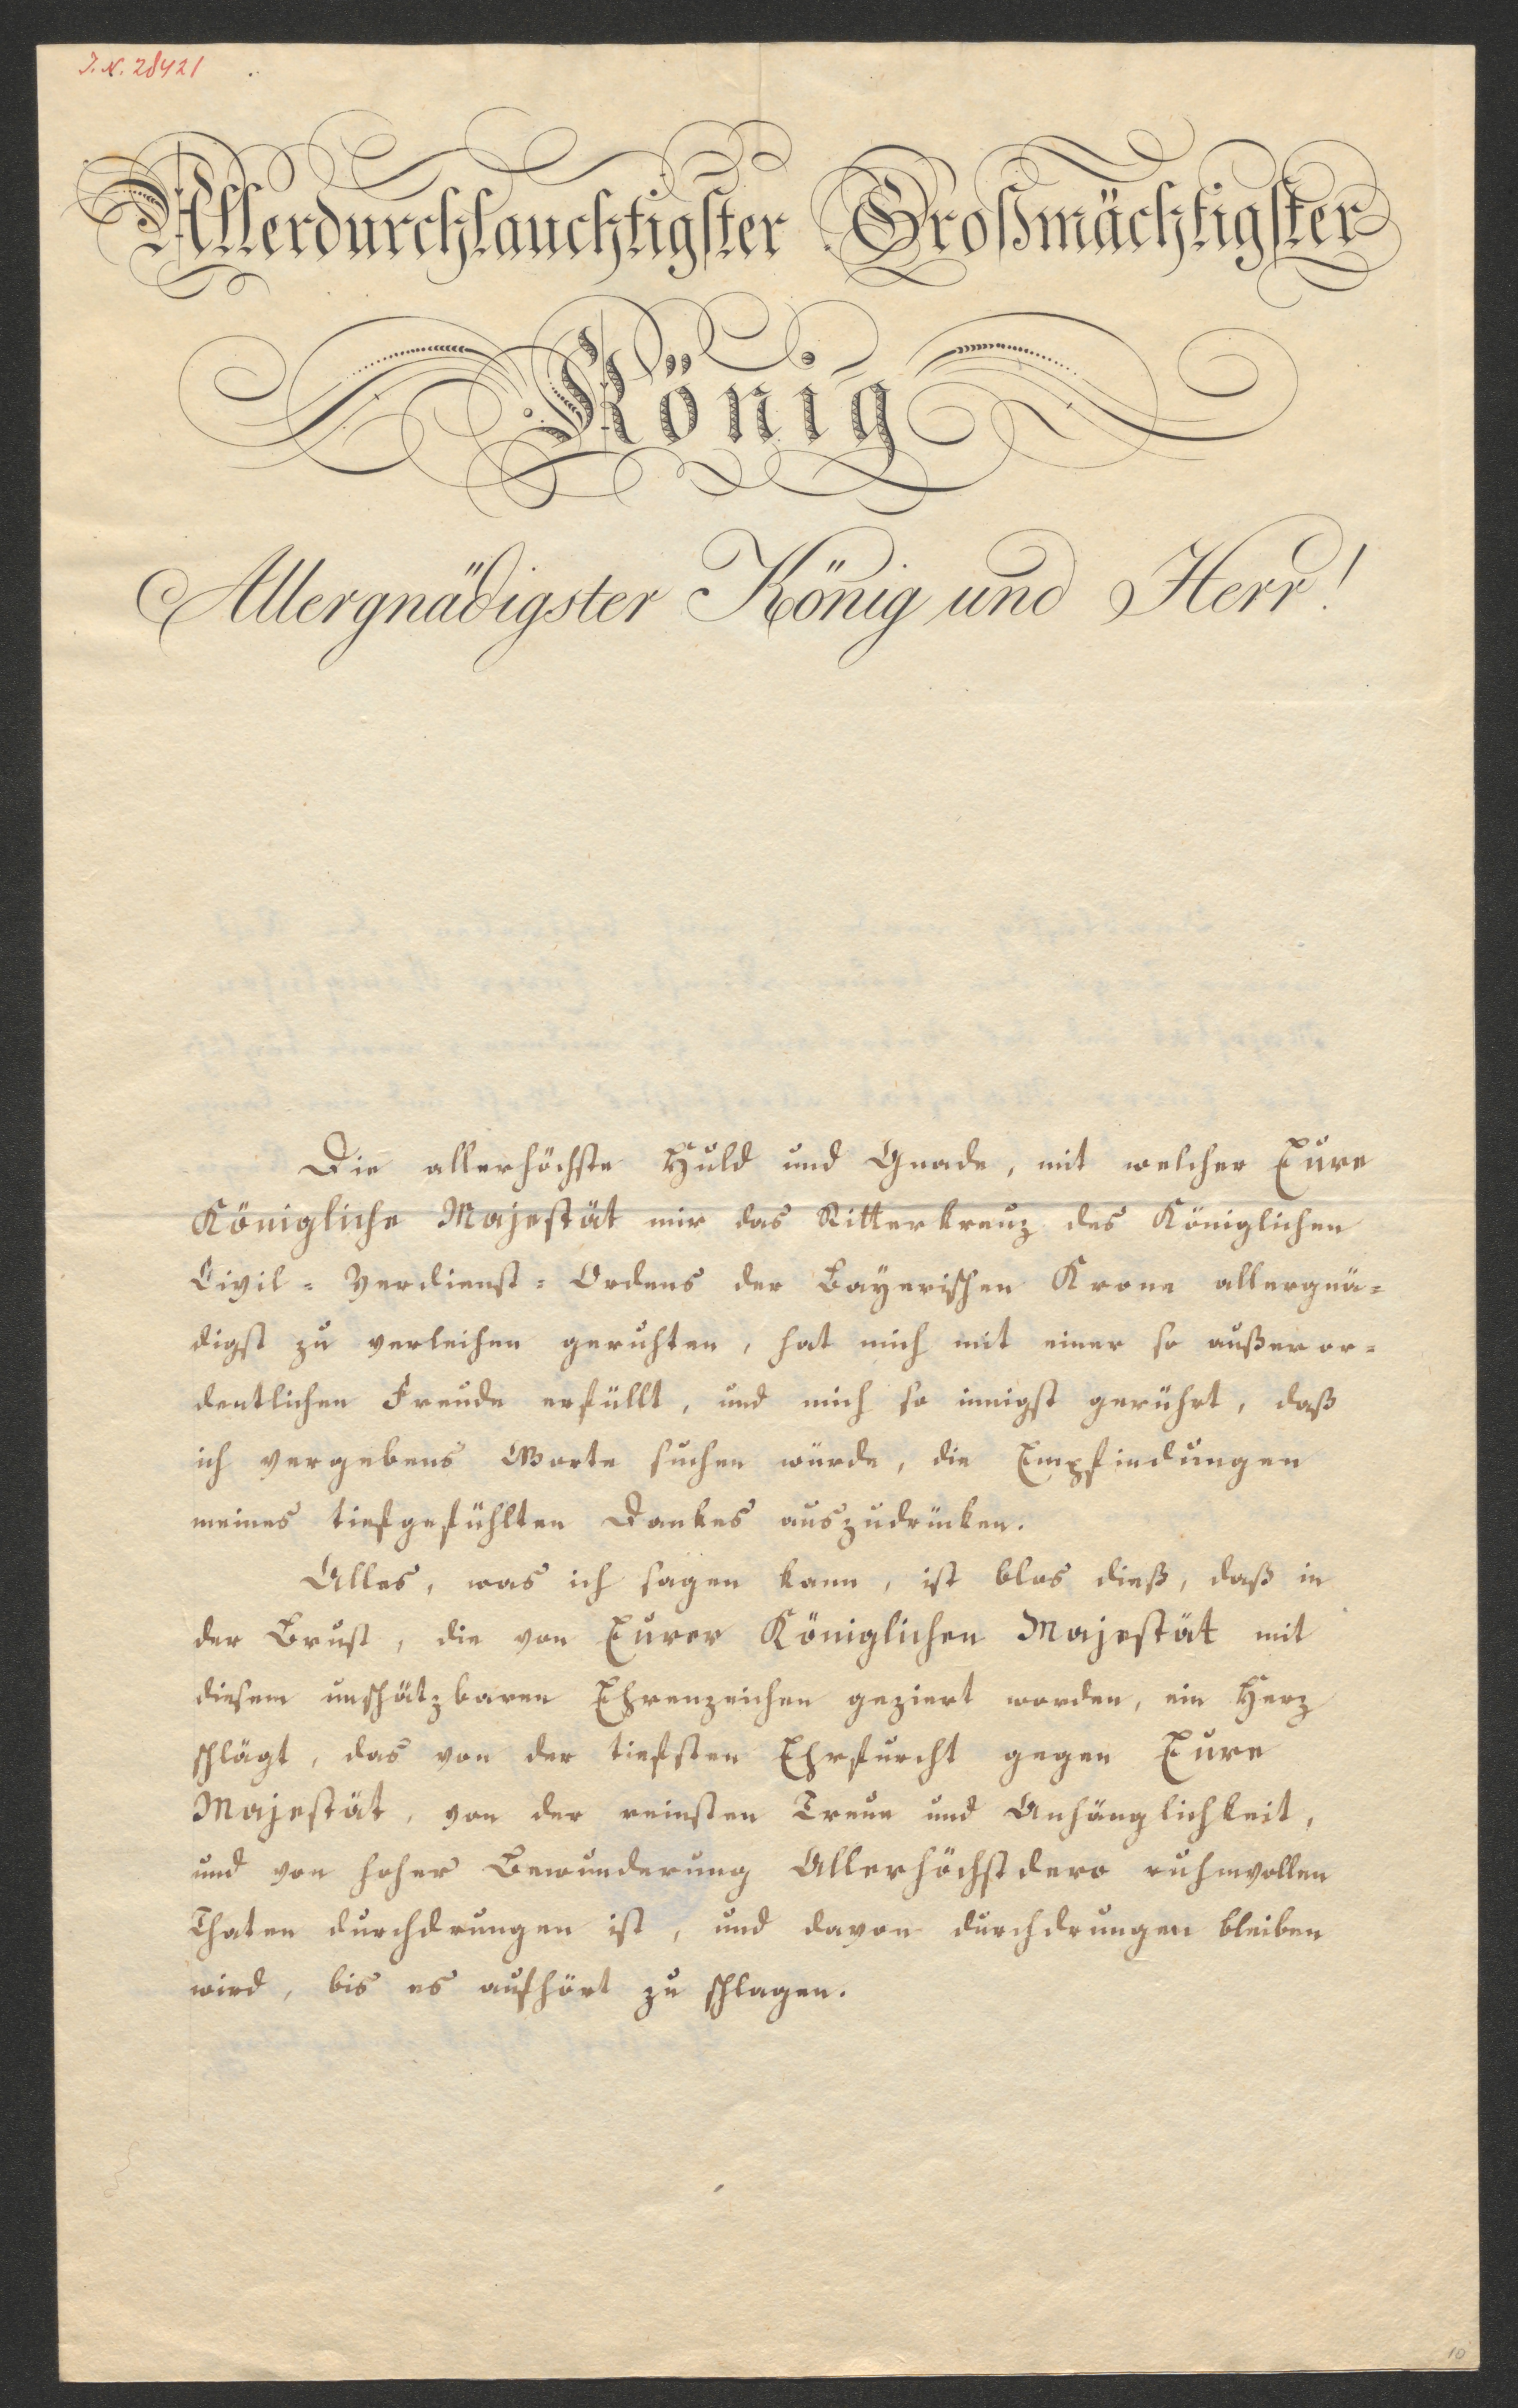 I. N. 28421
Allerdurchlauchtigster Großmächtigster
König
Allergnädigster König und Herr!
Die allerhöchste Huld und Gnade, mit welcher Eure
Königliche Majestät mir das Ritterkreuz des Königlichen
Civil-Verdienst-Ordens der Bayerischen Krone allergnä-
digst zu verleihen geruhten, hat mich mit einer so außeror-
dentlichen Freude erfüllt, und mich so innigst gerührt, daß
ich vergebens Worte suchen würde, die Empfindungen
meines tiefgefühlten Dankes auszudrücken.
Alles, was ich sagen kann, ist blos dieß, daß in
der Brust, die von Eurer Königlichen Majestät mit
diesem unschätzbaren Ehrenzeichen geziert worden, ein Herz
schlägt, das von der tiefsten Ehrfurcht gegen Eure
Majestät, von der reinsten Treue und Anhänglichkeit,
und von hoher Bewunderung Allerhöchstdero ruhmvollen
Thaten durchdrungen ist, und davon durchdrungen bleiben
wird, bis es aufhört zu schlagen.
10